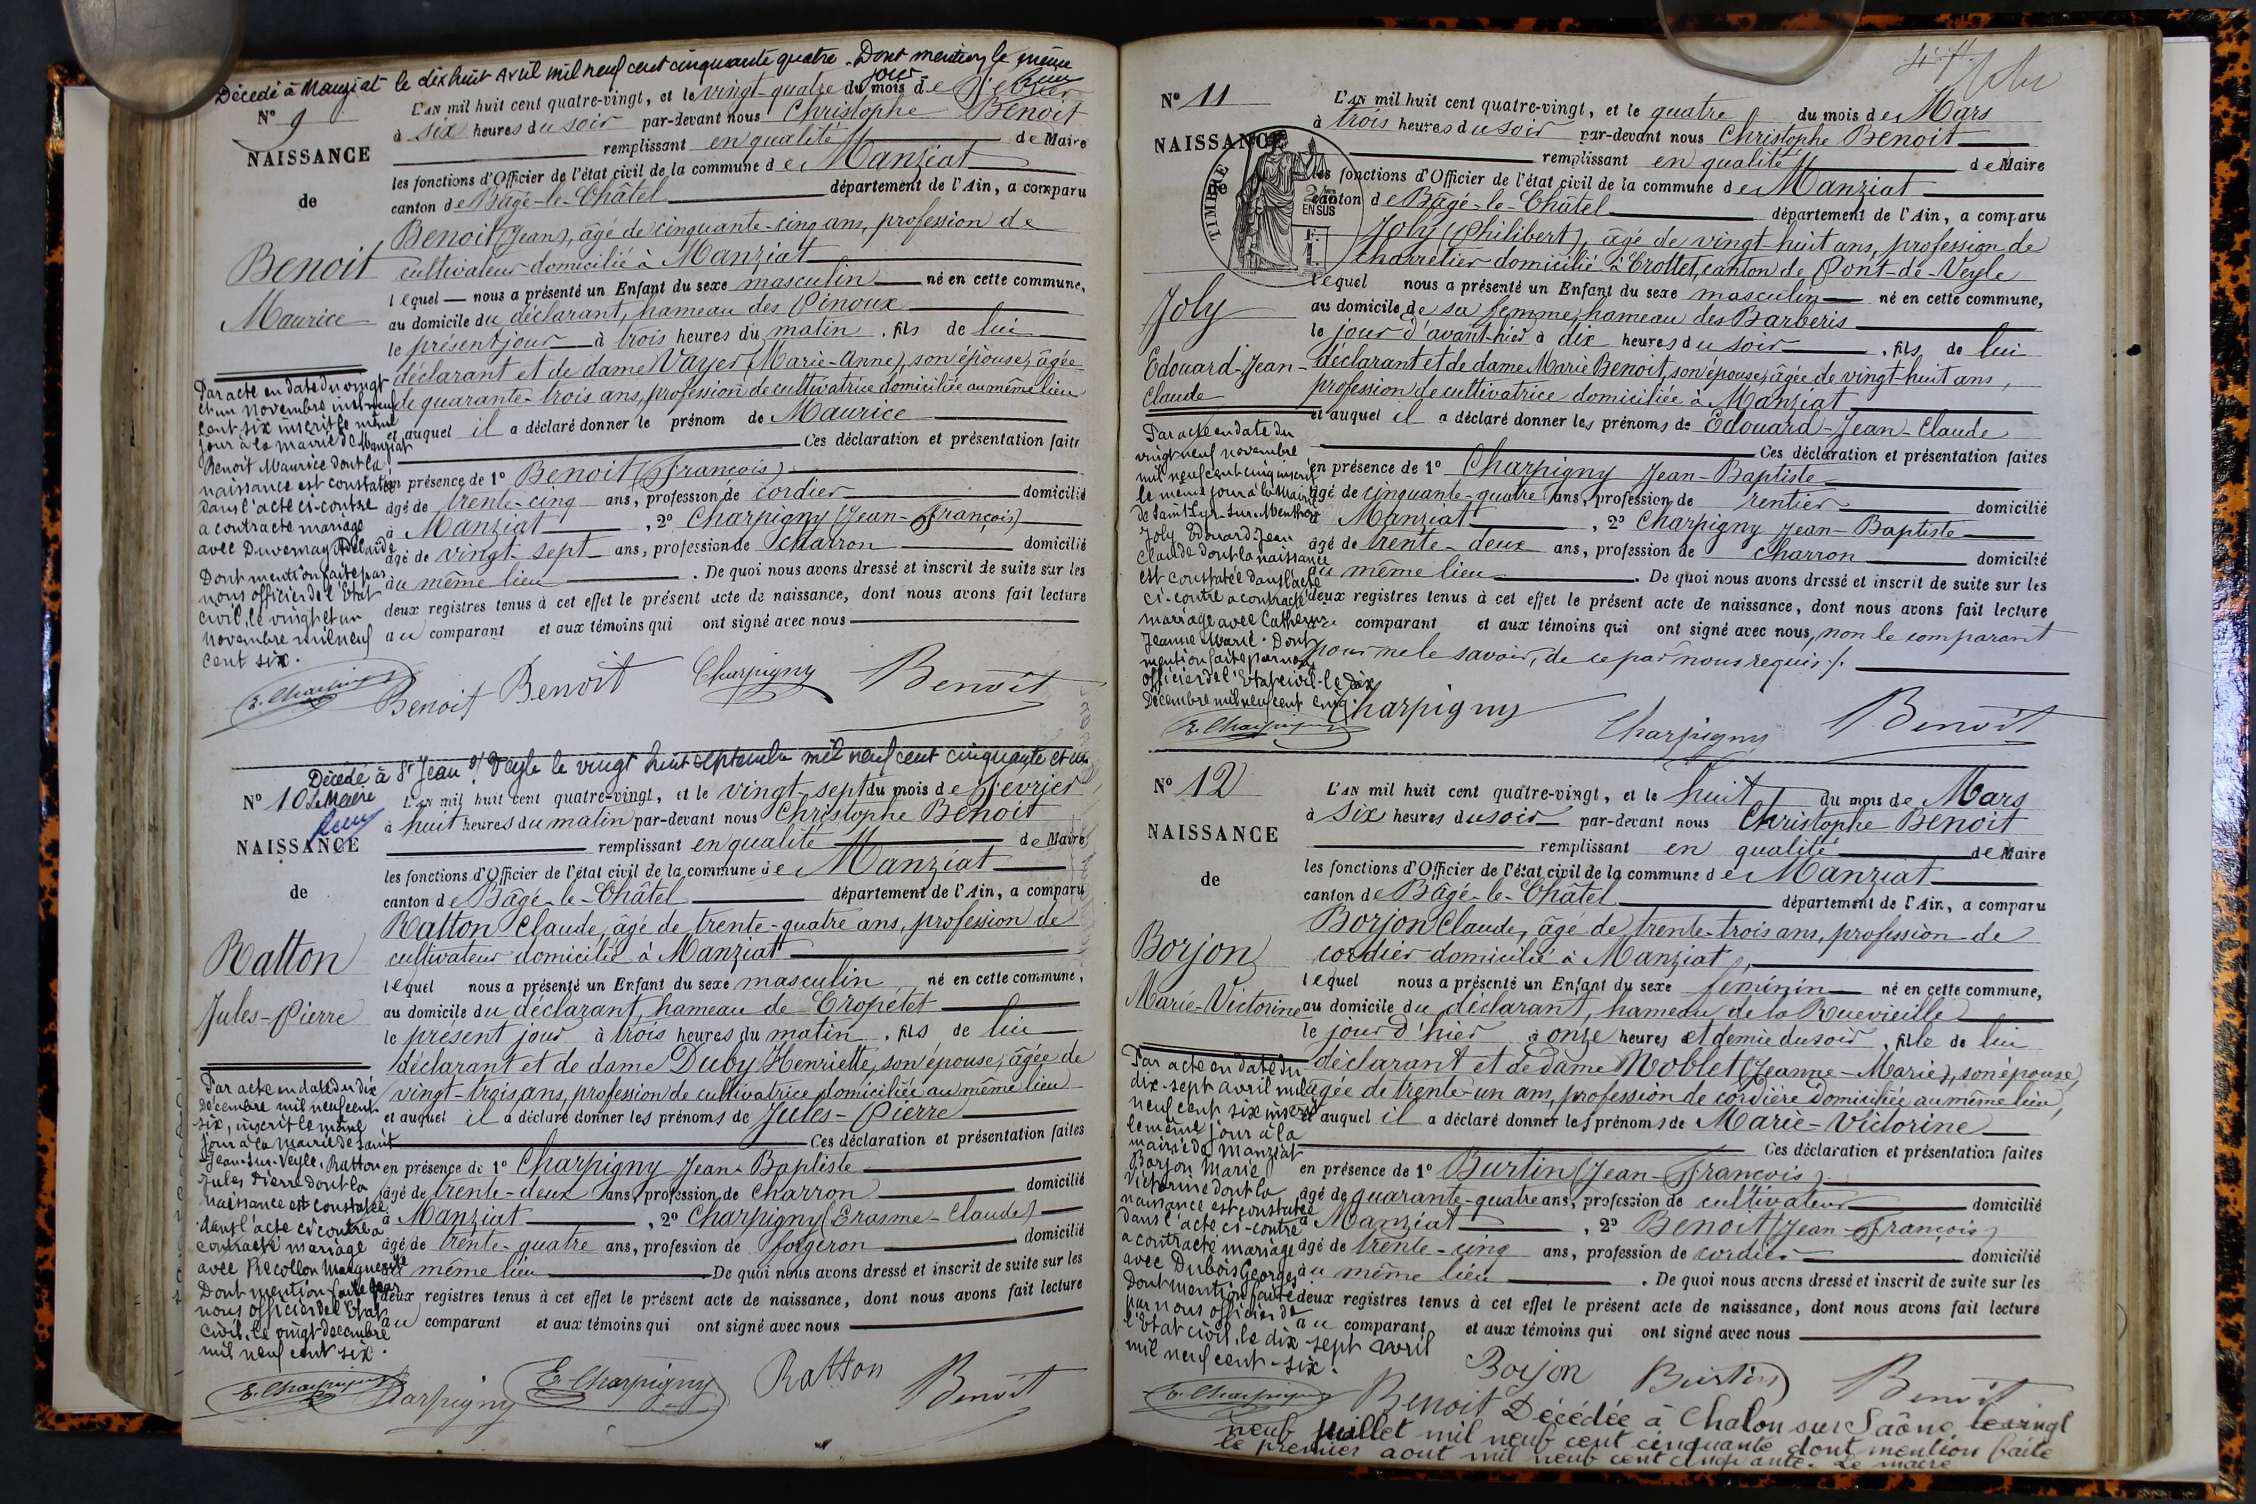 Décédé à Manziat le dix huit Avril mil neuf cent cinquante quatre. Dont mention le même
jour
N° 9
NAISSANCE
de
Benoit
Maurice
L'AN mil huit cent quatre-vingt, et le vingt-quatre du mois de Février
à six heures du soir par-devant nous Christophe Benoit
remplissant en qualité de Maire
les fonctions d'Officier de l'état civil de la commune de Manziat
canton de Bâgé-le-Châtel département de l'Ain, a comparu
Benoit (Jean), âgé de cinquante-cinq ans, profession de
cultivateur domicilié à Manziat
lequel nous a présenté un Enfant du sexe masculin né en cette commune,
au domicile du déclarant, hameau des Pinoux
le présent jour à trois heures du matin, fils de lui
déclarant et de dame Vayer (Marie-Anne), son épouse, âgée
de quarante-trois ans, profession de cultivatrice domiciliée au même lieu
et auquel il a déclaré donner le prénom de Maurice
Ces déclaration et présentation faites
en présence de 1° Benoit (François)
âgé de trente-cinq ans, profession de cordier domicilié
à Manziat, 2° Charpigny (Jean-François)
âgé de vingt sept ans, profession de charron domicilié
au même lieu. De quoi nous avons dressé et inscrit de suite sur les
deux registres tenus à cet effet le présent acte de naissance, dont nous avons fait lecture
au comparant et aux témoins qui ont signé avec nous
Par acte en date du vingt
et un novembre mil neuf
cent six inscrit le même
jour à la mairie de Manziat
Benoit Maurice dont la
naissance est constatée
dans l'acte ci-contre
a contracté mariage
avec Duvernay Adélaïde
Dont mention faite par
nous officier de l'Etat
civil, le vingt et un
novembre mil neuf
cent six.
E. Charpigny Benoit Benoit Charpigny Benoit
Décédé à St Jean s/ Veyle le vingt huit septembre mil neuf cent cinquante et un
Le Maire
N° 10
NAISSANCE
de
Ratton
Jules-Pierre
L'AN mil huit cent quatre-vingt, et le vingt-sept du mois de Février
à huit heures du matin par-devant nous Christophe Benoit
remplissant en qualité de Maire
les fonctions d'Officier de l'état civil de la commune de Manziat
canton de Bâgé-le-Châtel département de l'Ain, a comparu
Ratton Claude, âgé de trente-quatre ans, profession de
cultivateur domicilié à Manziat
lequel nous a présenté un Enfant du sexe masculin né en cette commune,
au domicile du déclarant, hameau de Cropetet
le présent jour à trois heures du matin, fils de lui
déclarant et de dame Duby Henriette, son épouse, âgée de
vingt-trois ans, profession de cultivatrice domiciliée au même lieu
et auquel il a déclaré donner les prénoms de Jules-Pierre
Ces déclaration et présentation faites
en présence de 1° Charpigny Jean-Baptiste
âgé de trente-deux ans, profession de charron domicilié
à Manziat, 2° Charpigny (Erasme-Claude)
âgé de trente-quatre ans, profession de forgeron domicilié
au même lieu De quoi nous avons dressé et inscrit de suite sur les
deux registres tenus à cet effet le présent acte de naissance, dont nous avons fait lecture
au comparant et aux témoins qui ont signé avec nous
Par acte en date du dix
Décembre mil neuf cent
six, inscrit le même
jour à la mairie de Saint
Jean-sur-Veyle, Ratton
Jules Pierre dont la
naissance est constatée
dans l'acte ci contre a
contracté mariage
avec Recollon Marguerite
Dont mention faite par
nous officier de l'Etat
civil, le vingt décembre
mil neuf cent six.
E. Charpigny Charpigny E. Charpigny Ratton Benoit
N° 11
NAISSANCE
de
TIMBRE
2/10
EN SUS
Joly
Edouard-Jean-
Claude
L'AN mil huit cent quatre-vingt, et le quatre du mois de Mars
à trois heures du soir par-devant nous Christophe Benoit
remplissant en qualité de Maire
les fonctions d'Officier de l'état civil de la commune de Manziat
canton de Bâgé-le-Châtel département de l'Ain, a comparu
Joly (Philibert), âgé de vingt-huit ans, profession de
charretier domicilié à Crottet, canton de Pont-de-Veyle
lequel nous a présenté un Enfant du sexe masculin né en cette commune,
au domicile de sa femme, hameau des Barberis
le jour d'avant-hier à dix heures du soir, fils de lui
déclarant et de dame Marie Benoit, son épouse, âgée de vingt-huit ans,
profession de cultivatrice domiciliée à Manziat
et auquel il a déclaré donner les prénoms de Edouard-Jean-Claude
Ces déclaration et présentation faites
en présence de 1° Charpigny Jean-Baptiste
âgé de cinquante-quatre ans, profession de rentier domicilié
à Manziat, 2° Charpigny Jean-Baptiste
âgé de trente-deux ans, profession de charron domicilié
au même lieu. De quoi nous avons dressé et inscrit de suite sur les
deux registres tenus à cet effet le présent acte de naissance, dont nous avons fait lecture
au comparant et aux témoins qui ont signé avec nous, non le comparant
pour ne le savoir, de ce par nous requis ./.
Par acte en date du
vingt neuf novembre
mil neuf cent cinq inscrit
le même jour à la mairie
de Saint Cyr-sur-Menthon
Joly Edouard Jean
Claude dont la naissance
est constatée dans l'acte
ci-contre a contracté
mariage avec Catherine
Jeanne Marie. Dont
mention faite par nous
officier de l'Etat civil le dix
Décembre mil neuf cent cinq.
E. Charpigny Charpigny Charpigny Benoit
N° 12
NAISSANCE
de
Borjon
Marie-Victorine
L'AN mil huit cent quatre-vingt, et le huit du mois de Mars
à six heures du soir par-devant nous Christophe Benoit
remplissant en qualité de Maire
les fonctions d'Officier de l'état civil de la commune de Manziat
canton de Bâgé-le-Châtel département de l'Ain, a comparu
Borjon Claude, âgé de trente-trois ans, profession de
cordier domicilié à Manziat,
lequel nous a présenté un Enfant du sexe féminin né en cette commune,
au domicile du déclarant, hameau de la Ruevieille
le jour d'hier à onze heures et demie du soir, fille de lui
déclarant et de dame Noblet (Jeanne-Marie), son épouse,
âgée de trente-un ans, profession de cordière domiciliée au même lieu,
et auquel il a déclaré donner les prénoms de Marie-Victorine
Ces déclaration et présentation faites
en présence de 1° Burtin (Jean-François)
âgé de quarante-quatre ans, profession de cultivateur domicilié
à Manziat, 2° Benoit (Jean-François)
âgé de trente-cinq ans, profession de cordier domicilié
au même lieu. De quoi nous avons dressé et inscrit de suite sur les
deux registres tenus à cet effet le présent acte de naissance, dont nous avons fait lecture
au comparant et aux témoins qui ont signé avec nous
Par acte en date du
dix-sept avril mil
neuf cent six inscrit
le même jour à la
mairie de Manziat
Borjon Marie
Victorine dont la
naissance est constatée
dans l'acte ci-contre
a contracté mariage
avec Dubois Georges
Dont mention faite
par nous officier de
l'Etat civil, le dix-sept avril
mil neuf cent-six.
E. Charpigny Benoit Borjon Burtin Benoit
Décédée à Chalon sur Saône le vingt
neuf juillet mil neuf cent cinquante dont mention faite
le premier aout mil neuf cent cinquante. Le maire